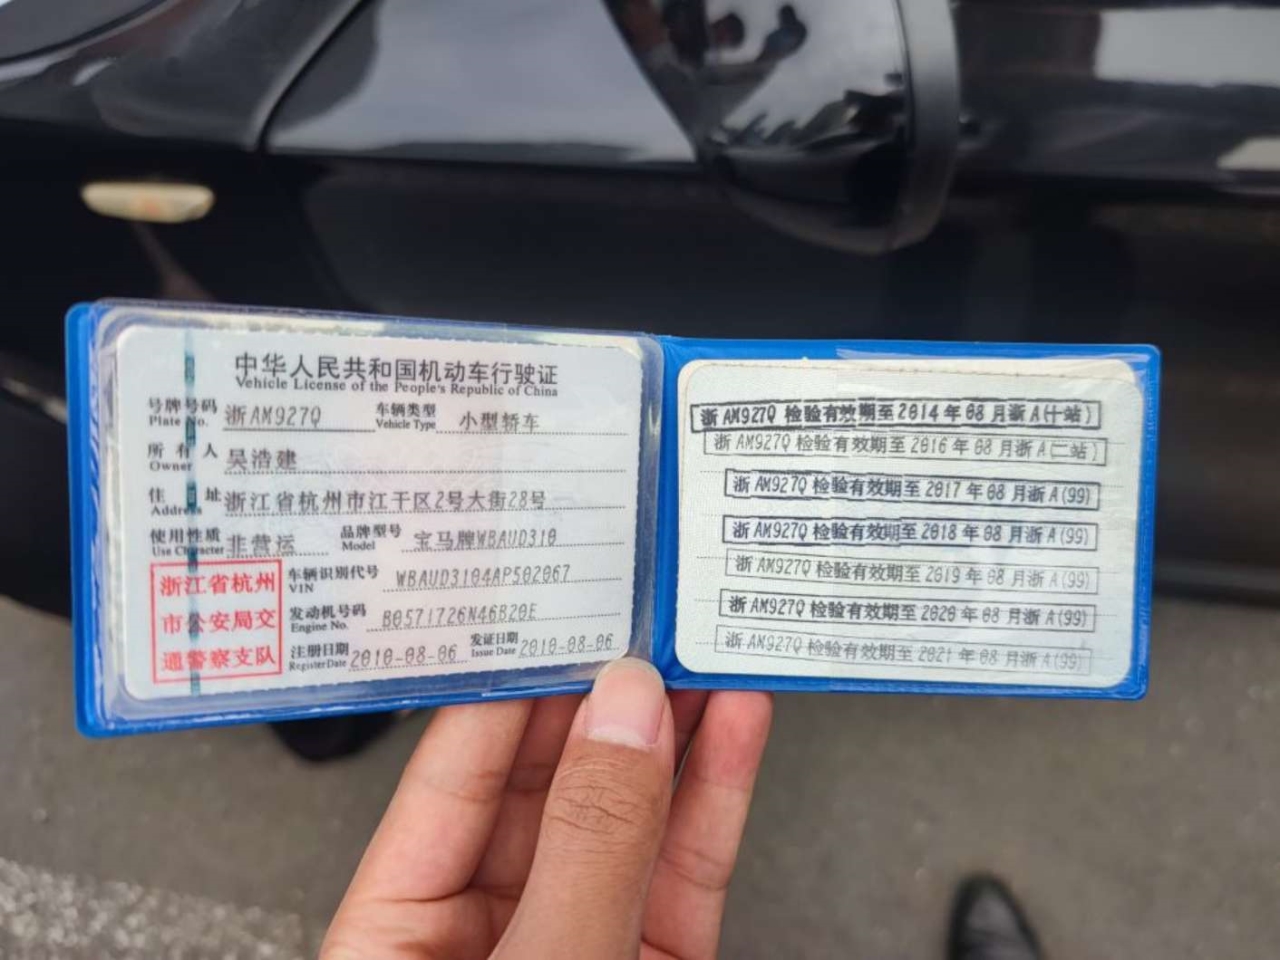 中华人民共和国机动车行驶证
Vehicle License of the People's Republic of China
号牌号码 浙AM927Q 车辆类型 小型轿车
Plate No. Vehicle Type
所有人 吴浩建
Owner
住址 浙江省杭州市江干区2号大街28号
Address
使用性质 非营运 品牌型号 宝马牌WBAUD310
Use Character Model
浙江省杭州
市公安局交
通警察支队
车辆识别代号 WBAUD3104AP502067
VIN
发动机号码 B0571726N46B20E
Engine No.
注册日期 2010-08-06 发证日期 2010-08-06
Register Date Issue Date
浙AM927Q 检验有效期至2014年08月浙A(十站)
浙AM927Q 检验有效期至2016年08月浙A(二站)
浙AM927Q 检验有效期至2017年08月浙A(99)
浙AM927Q 检验有效期至2018年08月浙A(99)
浙AM927Q 检验有效期至2019年08月浙A(99)
浙AM927Q 检验有效期至2020年08月浙A(99)
浙AM927Q 检验有效期至2021年08月浙A(99)